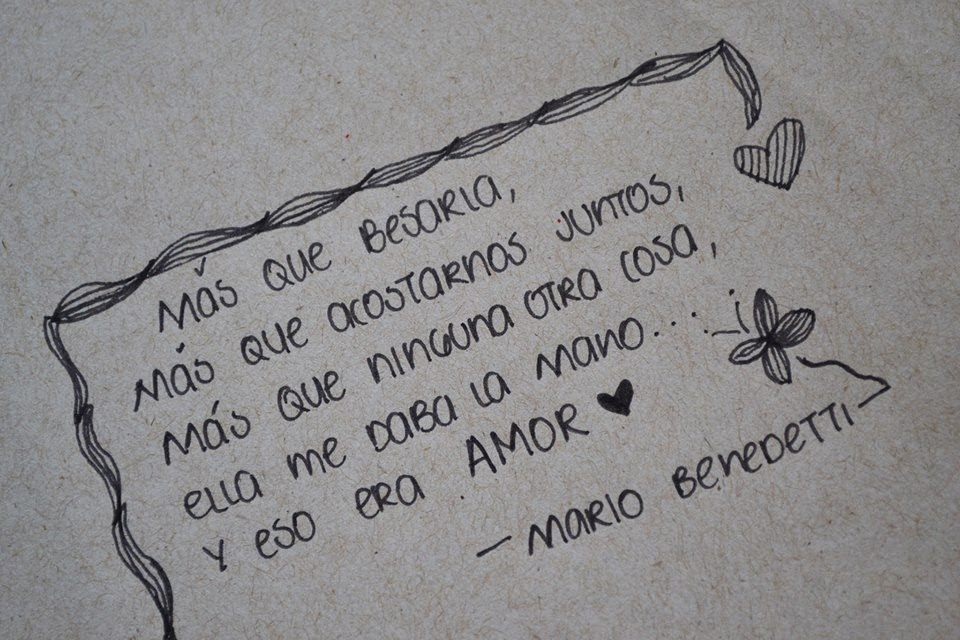 Más que Besarla,
Más que acostarnos juntos,
Más que ninguna otra cosa,
ella me daba la mano...
y eso era AMOR ♥
— Mario Benedetti